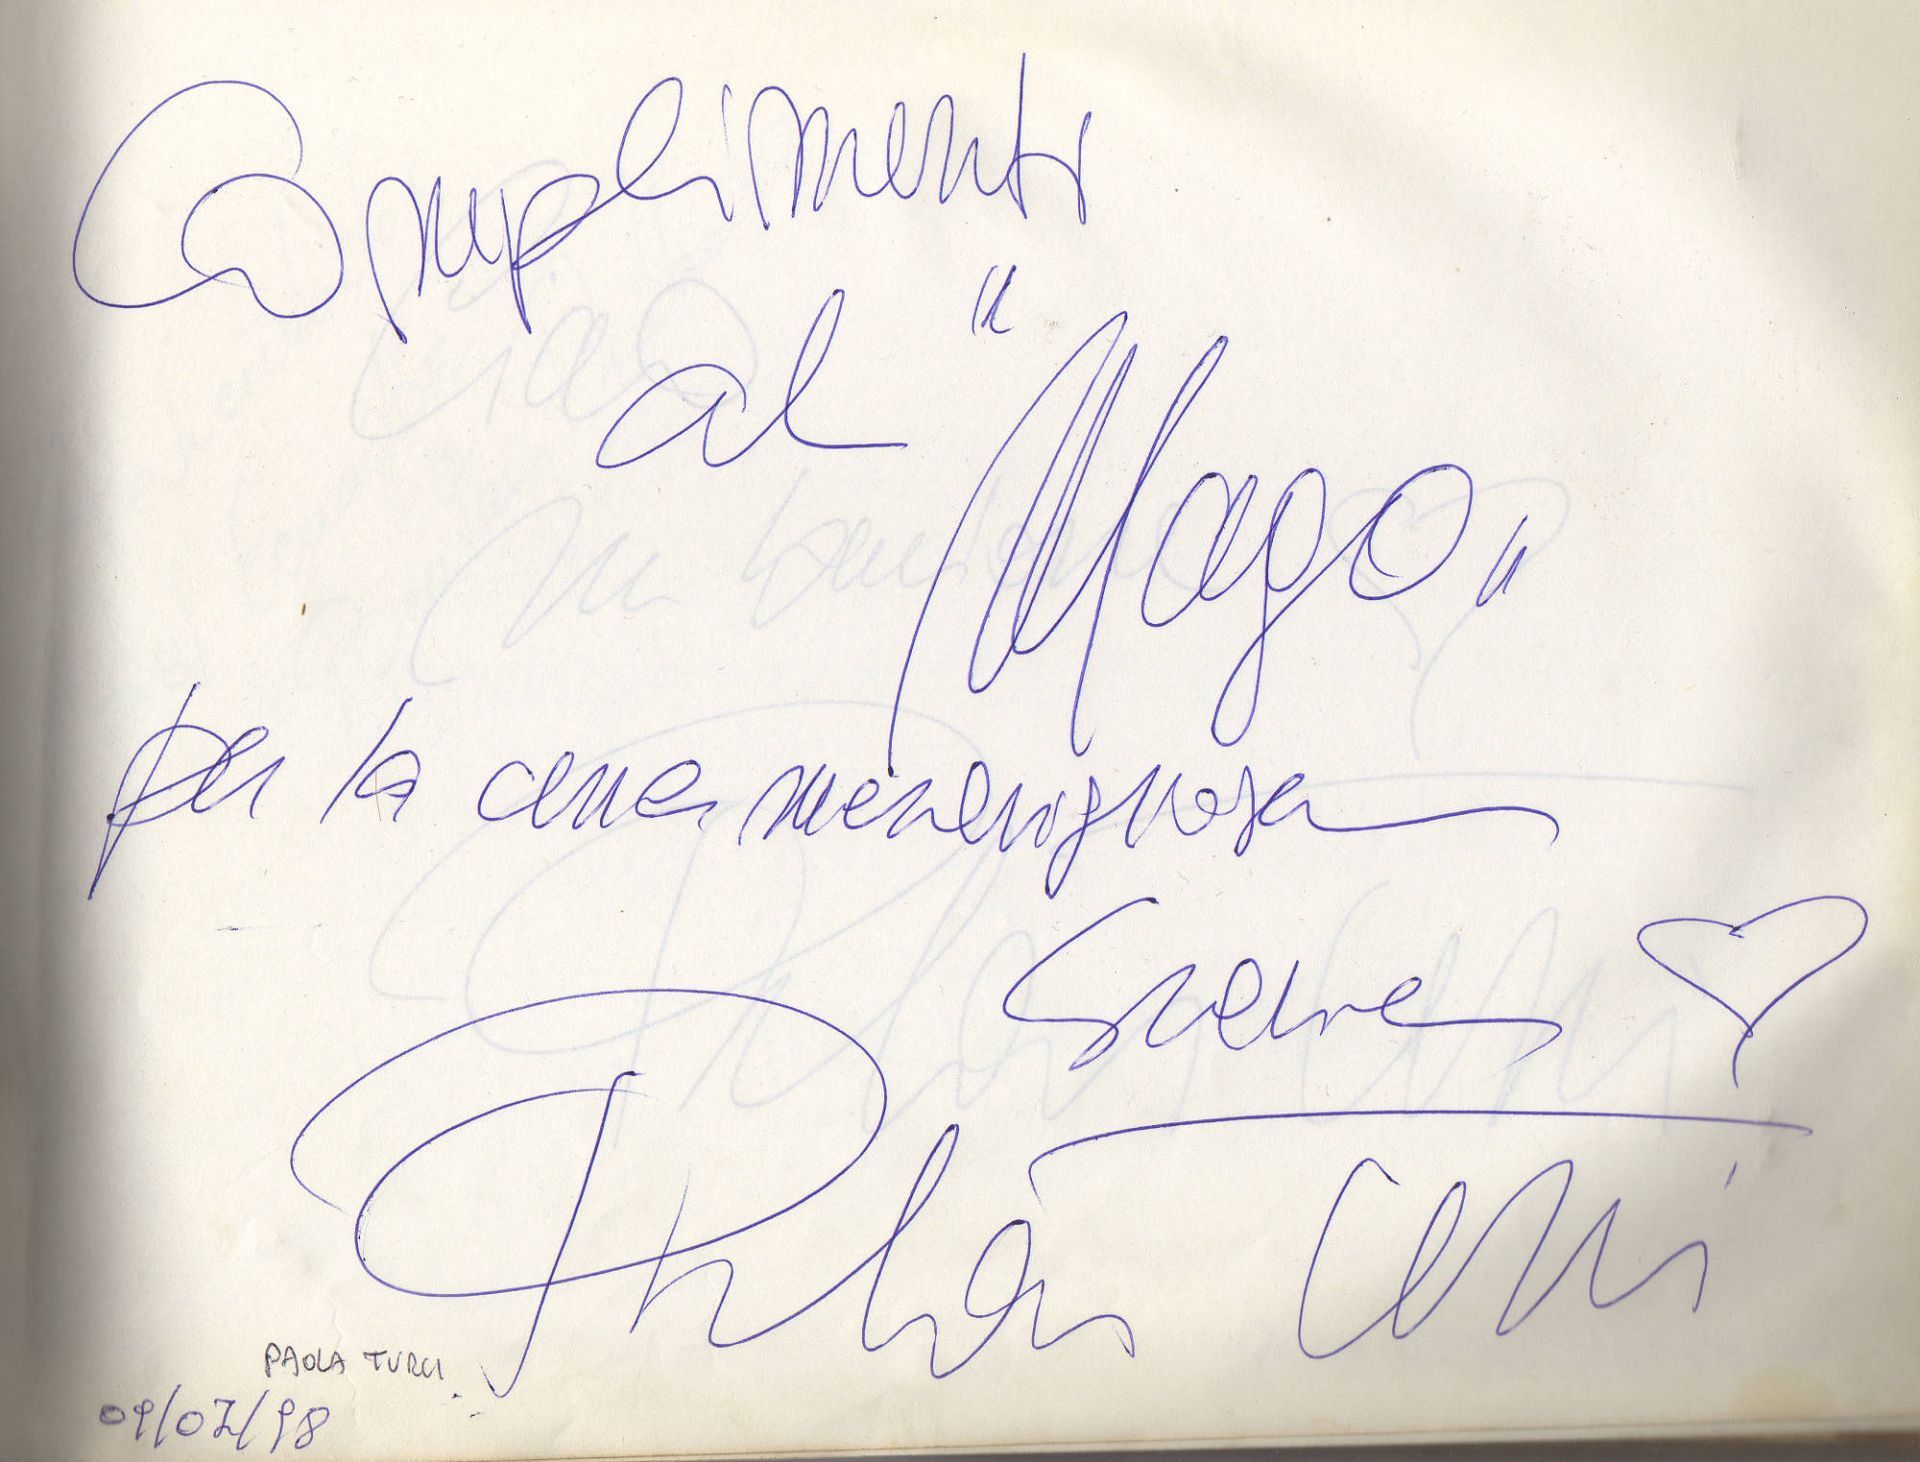 Complimenti
al "Mago"
per la cena meravigliosa
Paola Turci
PAOLA TURCI
09/07/98